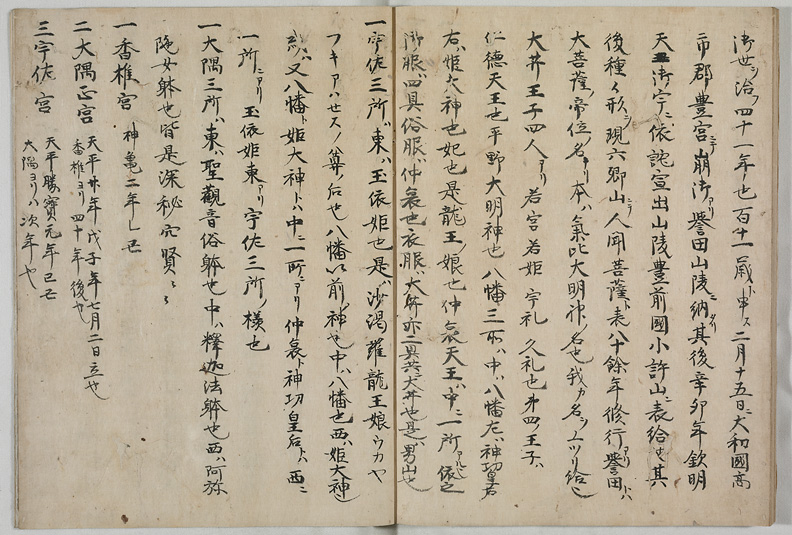 御世ヲ治フ四十一年也百十一歳ト申ス二月十五日ニ大和國高
市郡豊宮ニテ崩御アリ譽田山陵ニ納タリ其後辛卯年欽明
天皇御宇ニ依託宣出山陵豊前國小許山ニ表給ヘ其
後種々形ヲ現六郷山ニテ人聞菩薩ト表八十餘年修行アリ譽田ハ
大菩薩ノ帝位ノ名ナリ本ハ氣比大明神ノ名也我カ名ヲユツリ給也
大井王子四人アリ 若宮 若姫 宇礼 久礼也 第四ノ王子ハ
仁德天王也平野大明神也八幡三所ハ中ハ八幡左ハ神功皇后
右ハ姫大神也妃也是龍王ノ娘也仲哀天王ハ中ニ一所アルヘシ依之
御服ハ四具俗服ハ仲哀也衣服ハ大井亦二具共ニ大井也是ハ男山也
一宇佐三所ハ東ハ玉依姫也是ハ沙渇羅龍王娘ウカヤ
フキアハセスノ尊ノ后也八幡以前ノ神也中ハ八幡也西ハ姫大神
又八幡ト姫大神トハ中ニ一所ニアリ仲哀ト神功皇后トハ西ニ
一所ニアリ 玉依姫東ニアリ 宇佐三所ノ様也
一大隅三所ハ東ハ聖觀音俗躰也中ハ釋迦法躰也西ハ阿弥
陁女躰也皆是深秘穴賢々々
一香椎宮 神亀二年
二大隅正宮 天平廿年戊子年七月二日立也
香椎ヨリ四十年後也
三宇佐宮 天平勝寶元年己丑
大隅ヨリハ次年也